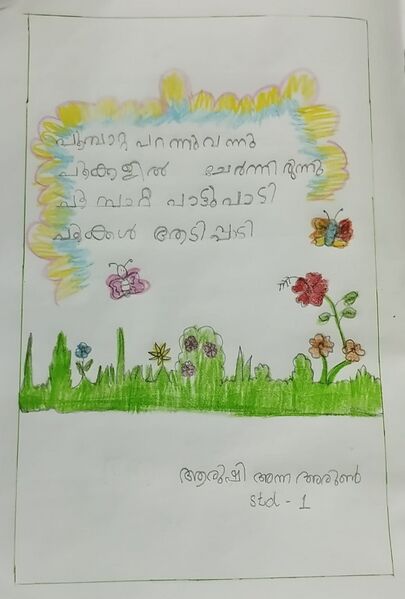 പൂമ്പാറ്റ പറന്നുവന്നു
പൂക്കളിൽ ചേർന്നിരുന്നു
പൂമ്പാറ്റ പാട്ടുപാടി
പൂക്കൾ ആടിപ്പാടി
ആരുഷി അന്ന അരുൺ
std - 1